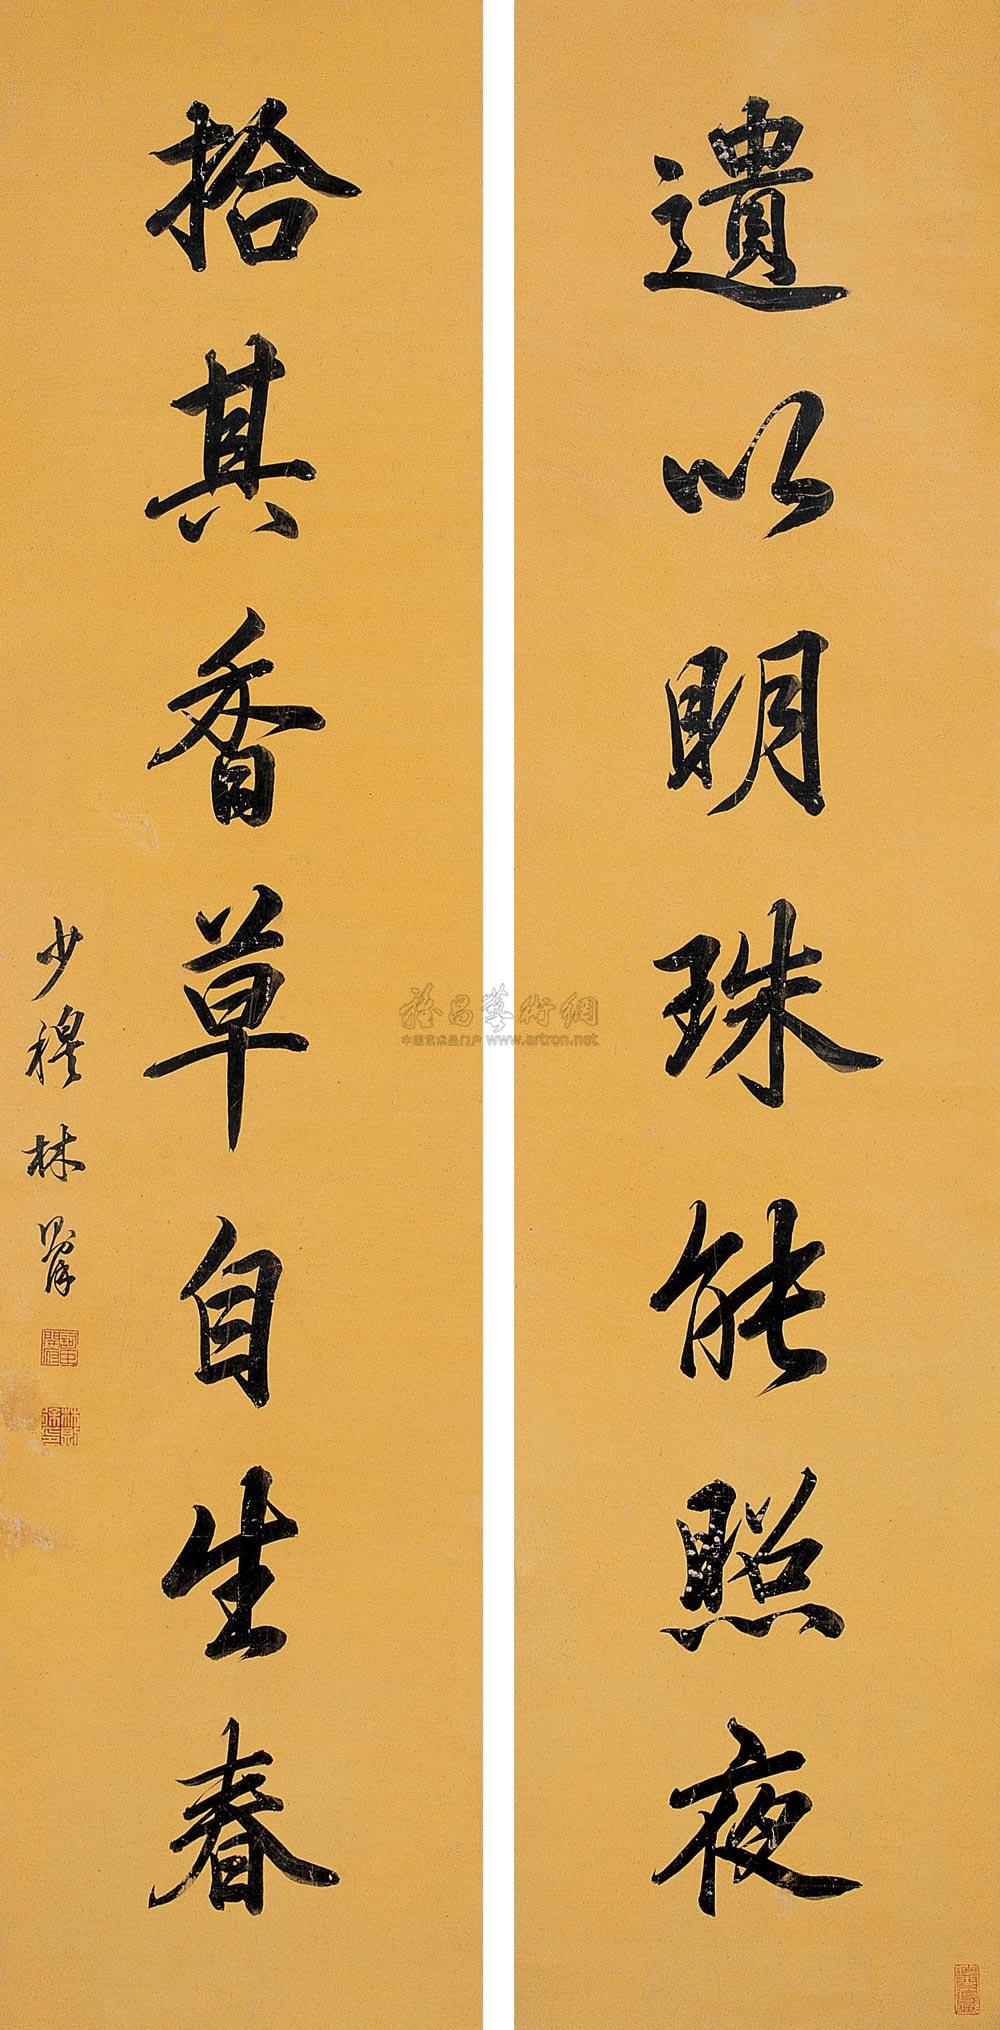 遺以明珠能照夜
拾其香草自生春
少穆林則徐
雅昌藝術網
中国艺术品门户 www.artron.net